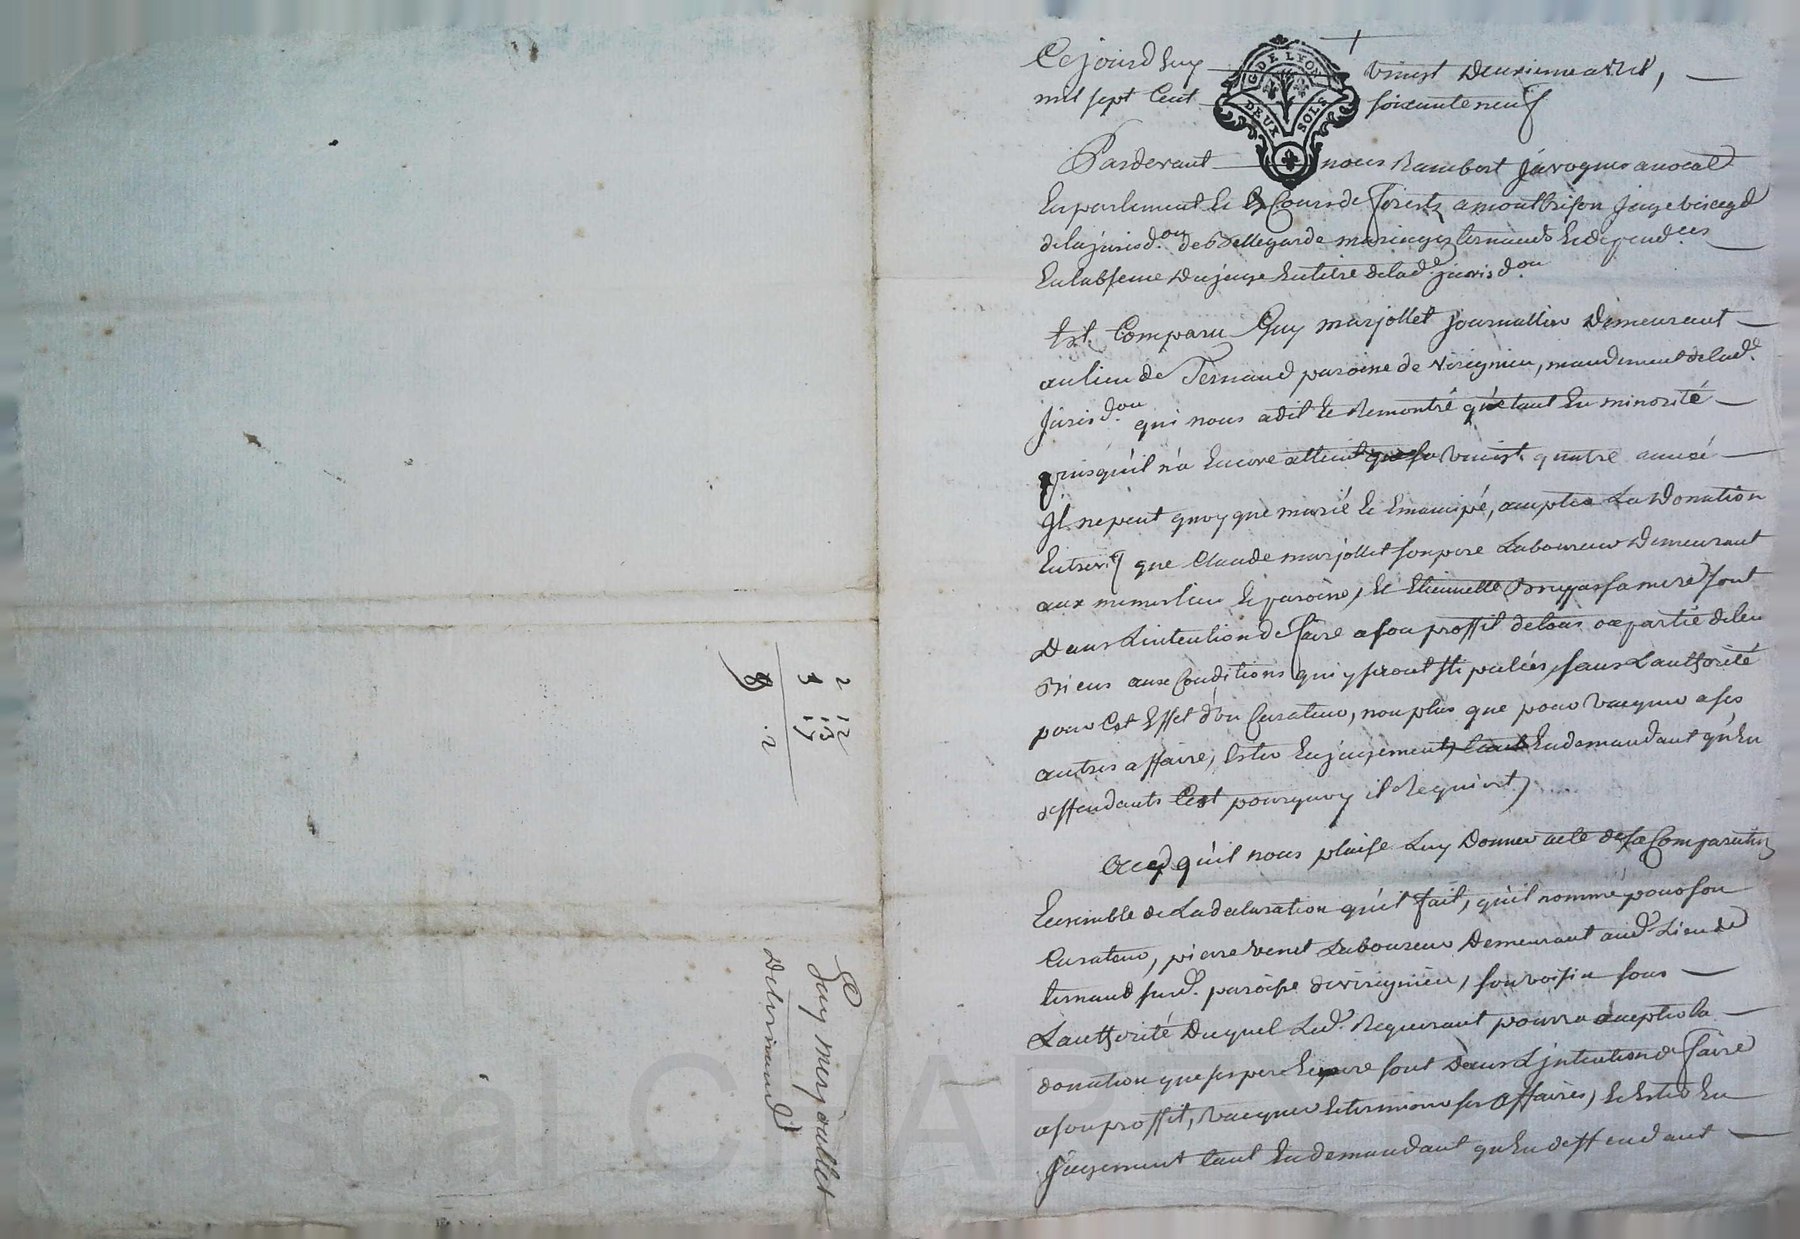 Cejourdhuy vingt deuxieme avril,
mil sept Cent soixante neuf
G. DE LYON
DEUX SOLS
Pardevant nous Rambert Javogues avocat
En parlement Et Es Cours de Forestz a montbrison Juge
de la jurisd.on de Bellegarde Ternands Et dependces
En labsence du juge En titre de lad.e jurisd.on
Est Comparu Guy marjollet journallier Demeurant
au lieu de Ternand paroisse de virignieu, mandement de lad.e
jurisd.on qui nous a dit Et Remontré qu'étant En minorité
puisqu'il n'a Encore atteint que sa vingt quatre année
Il ne peut quoyque marié Et Emancipé, accepter La Donation
que Claude marjollet son pere Laboureur Demeurant
aux memes lieu Et paroisse, Et Etiennette sa mere font
Dans L'intention de faire a son proffit de tous ou partie de leu
Biens aux Conditions qui y seront stipulées, sans L'authorité
pour Cet Effet d'un Curateur, non plus que pour vacquer a ses
autres affaire, Ester En jugement, tant En demandant qu'En
deffendants C'est pourquoy il Requiert,
A ce qu'il nous plaise Luy Donner acte de sa Comparution
Ensemble de La declaration qu'il fait, qu'il nomme pour son
Curateur, pierre venet Laboureur Demeurant aud. Lieu de
ternand sud. paroisse de virignieu, son voisin sous
L'authorité Duquel Led. Requerant pourra accepter la
donation que ses pere Et mere sont Dans L'intention de faire
a son proffit, vacquer Et terminer ses affaires, Et Ester En
Jugement tant En demandant qu'En deffendant
2 12
13
3 17
8 . 2
Guy merjoullet
De ternand